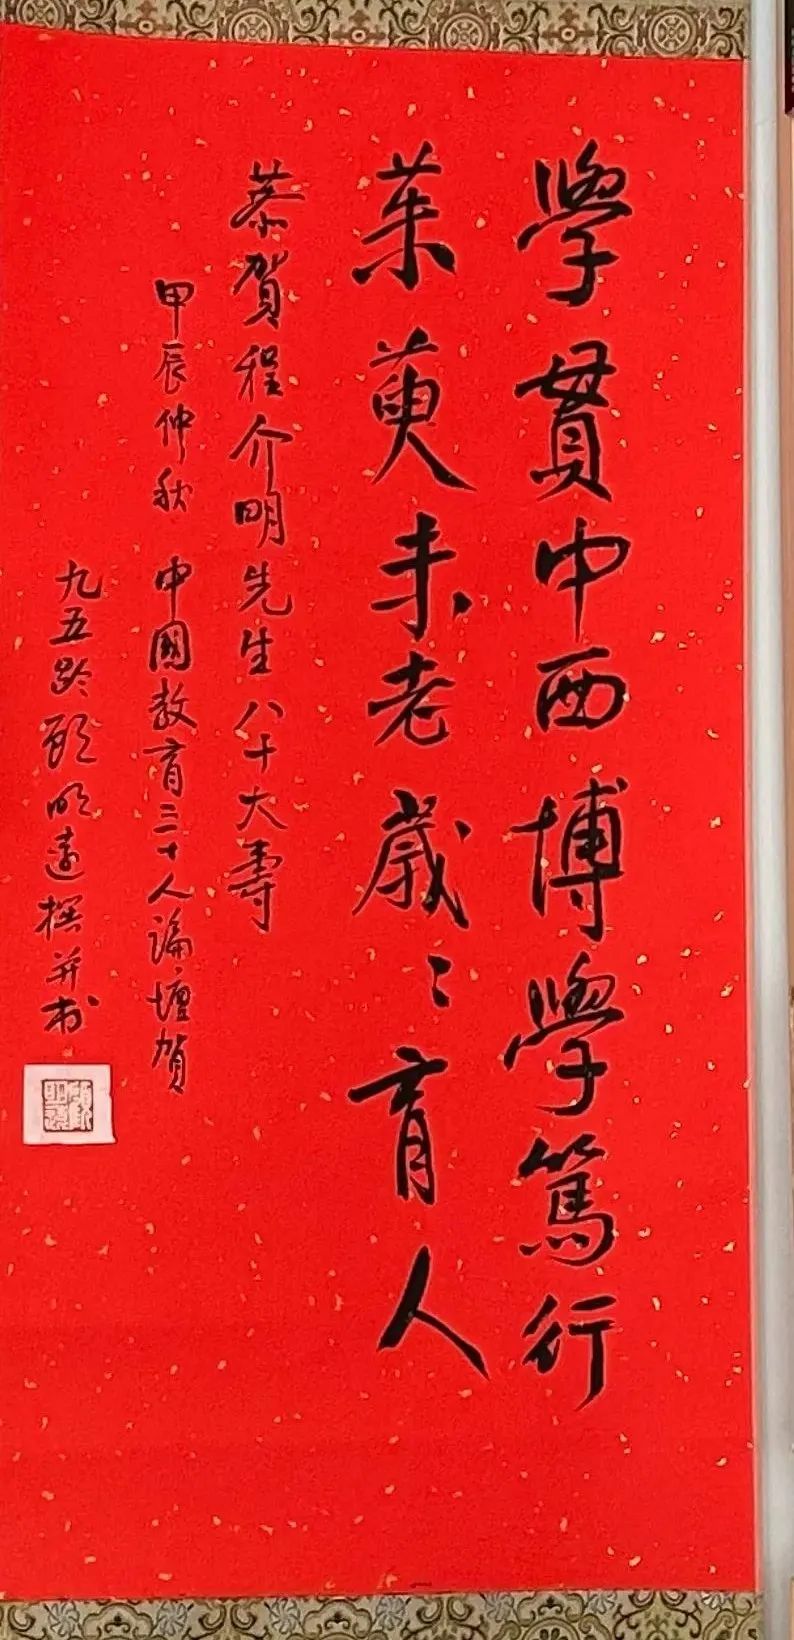 學貫中西博學篤行
茱萸未老歲〻育人
恭賀程介明先生八十大壽
甲辰仲秋 中國教育三十人論壇賀
九五龄顾明遠撰并书
顧明遠